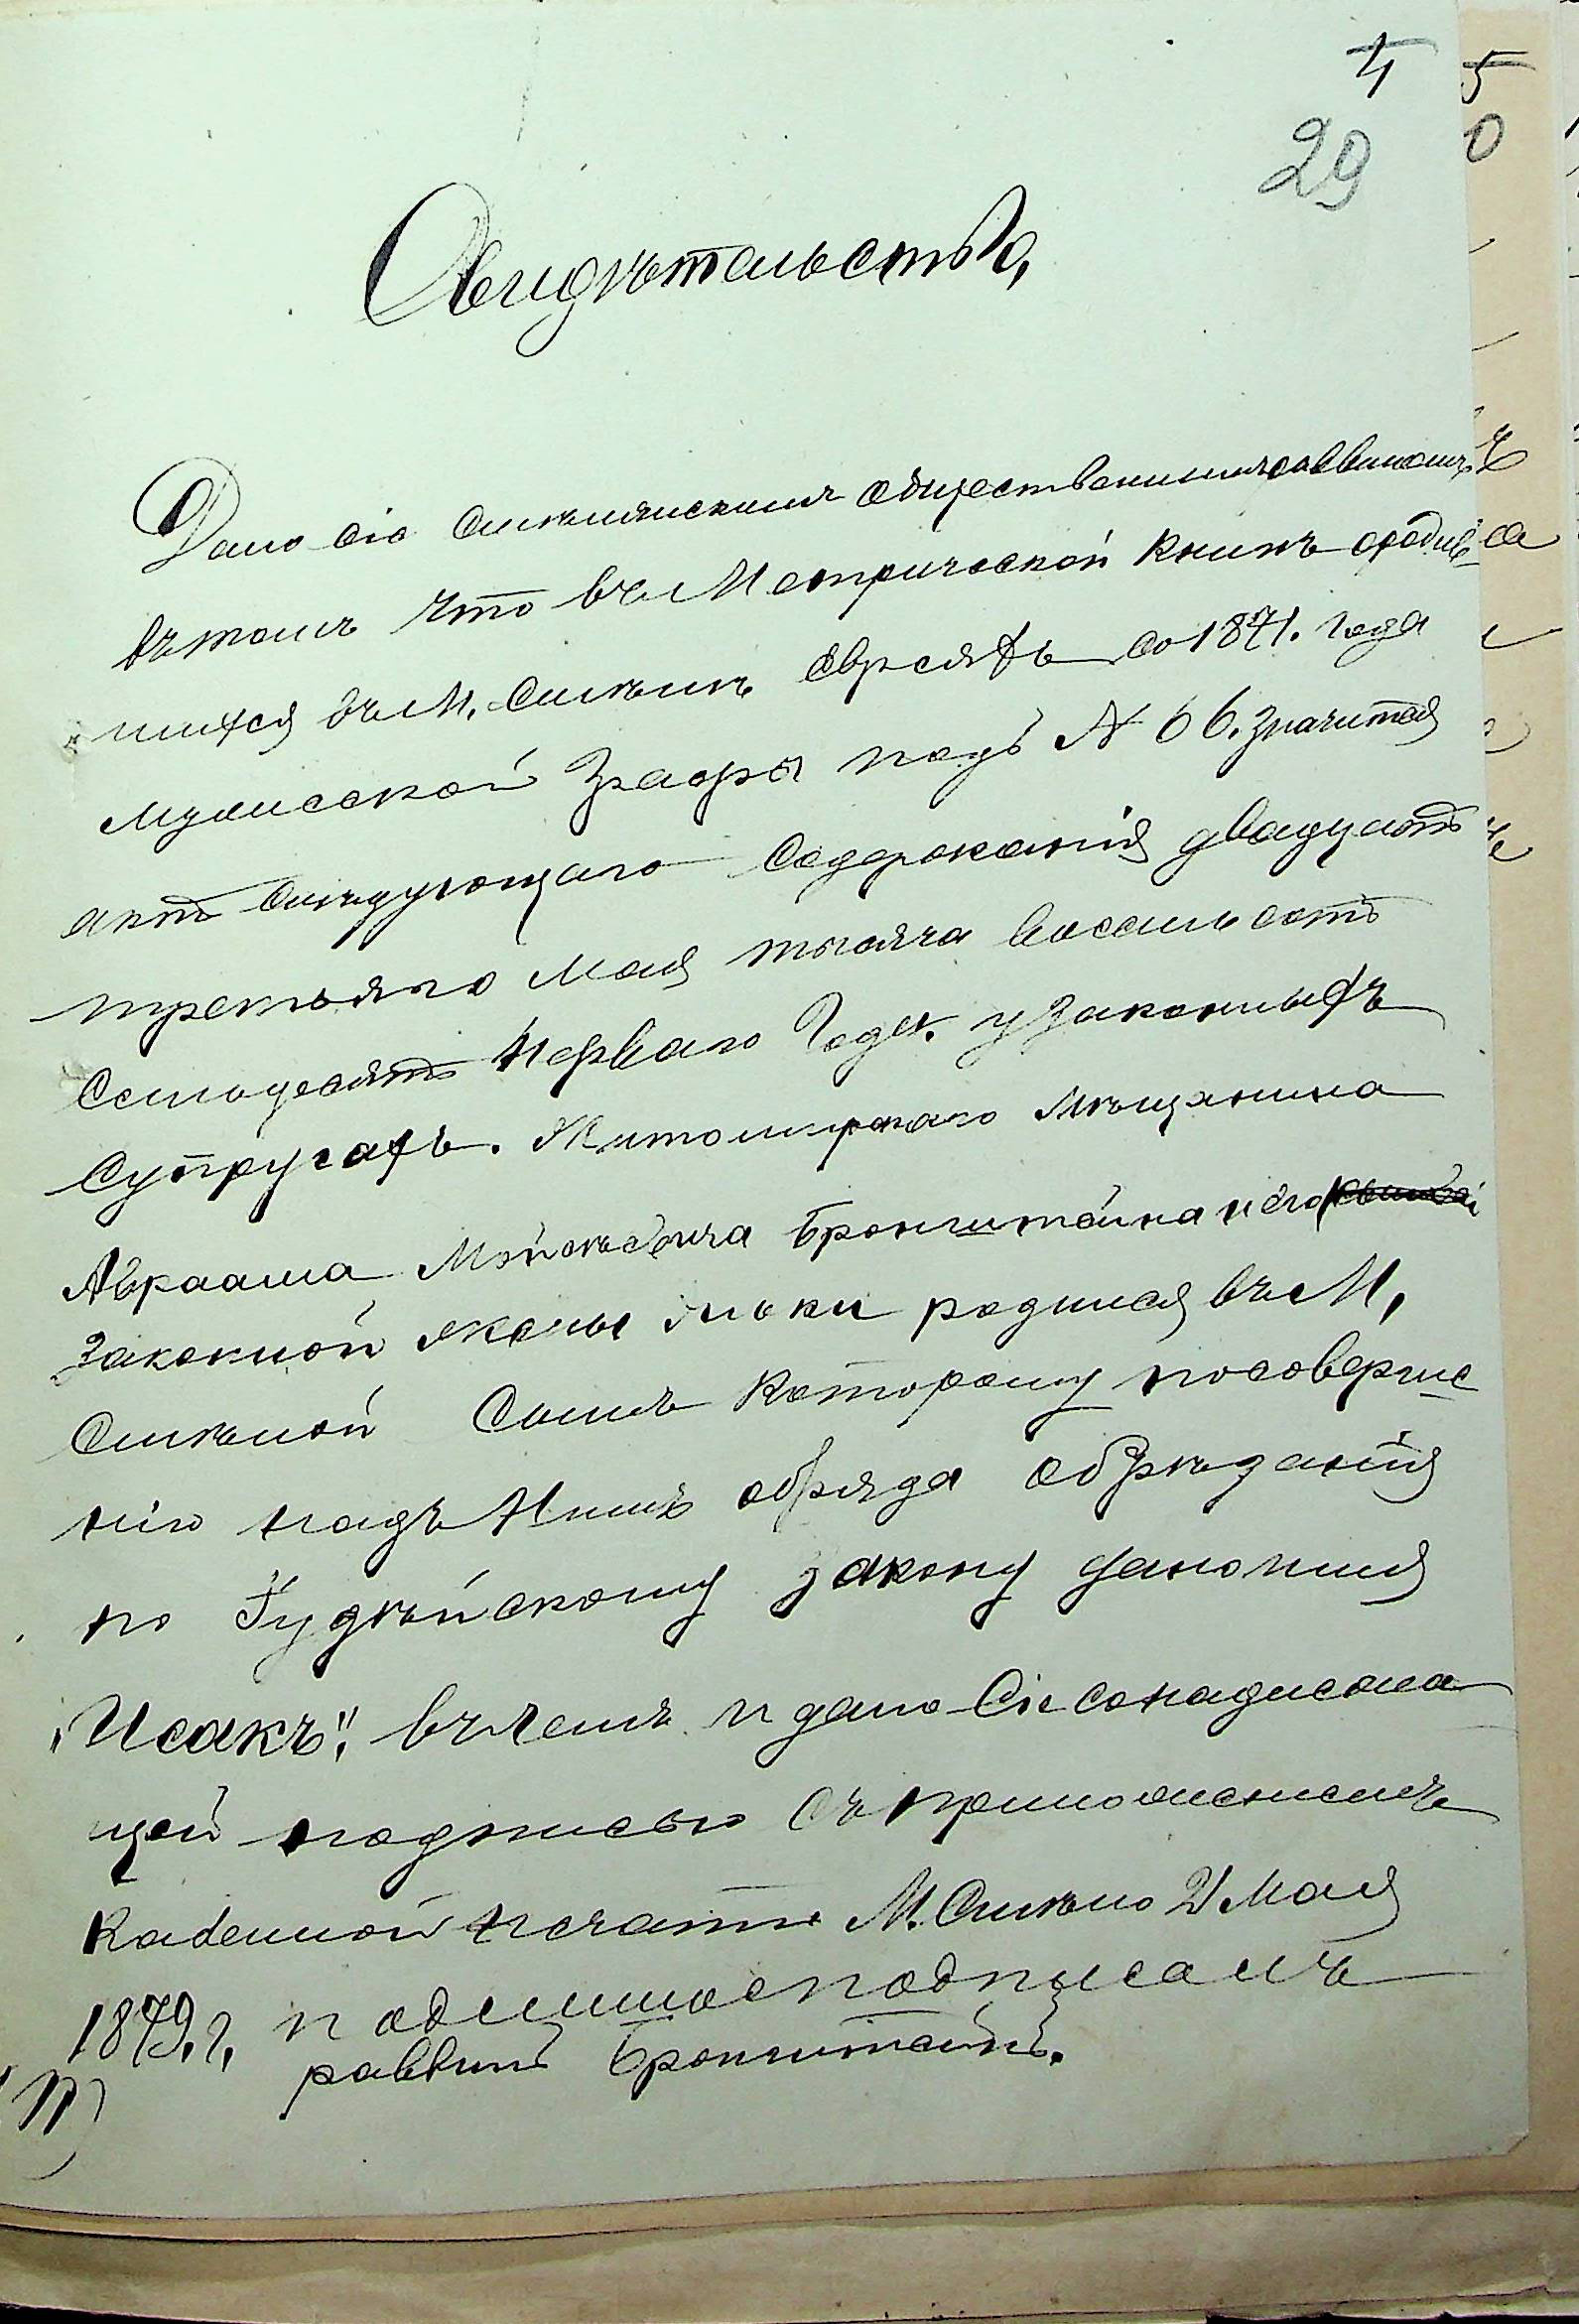 4
29
Свидѣтельство,
Дано сіе Смѣлянскимъ общественнымъ раввиномъ
въ томъ что въ Метрической книгѣ о родив-
шихся въ М. Смѣлѣ Евреяхъ за 1871. года
мужеской графы подъ № 66. значится
актъ слѣдующаго содержанія двадцать
третьяго Мая тысяча восемьсотъ
семьдесятъ перваго года. у законныхъ
супруговъ. Житомирскаго мѣщанина
Авраама Мойсѣевича Бронштейна и его
законной жены родился въ М,
Смѣлой Сынъ которому по соверше
нію надъ нимъ обряда обрѣзанія
по Іудейскому закону дано имя
„Исакъ". въ чемъ и дано сіе за надлежа
щей подписью съ приложеніемъ
казенной печати М. Смѣло 21 Мая
1879. г. подлинное подписалъ
раввинъ Бронштейнъ.